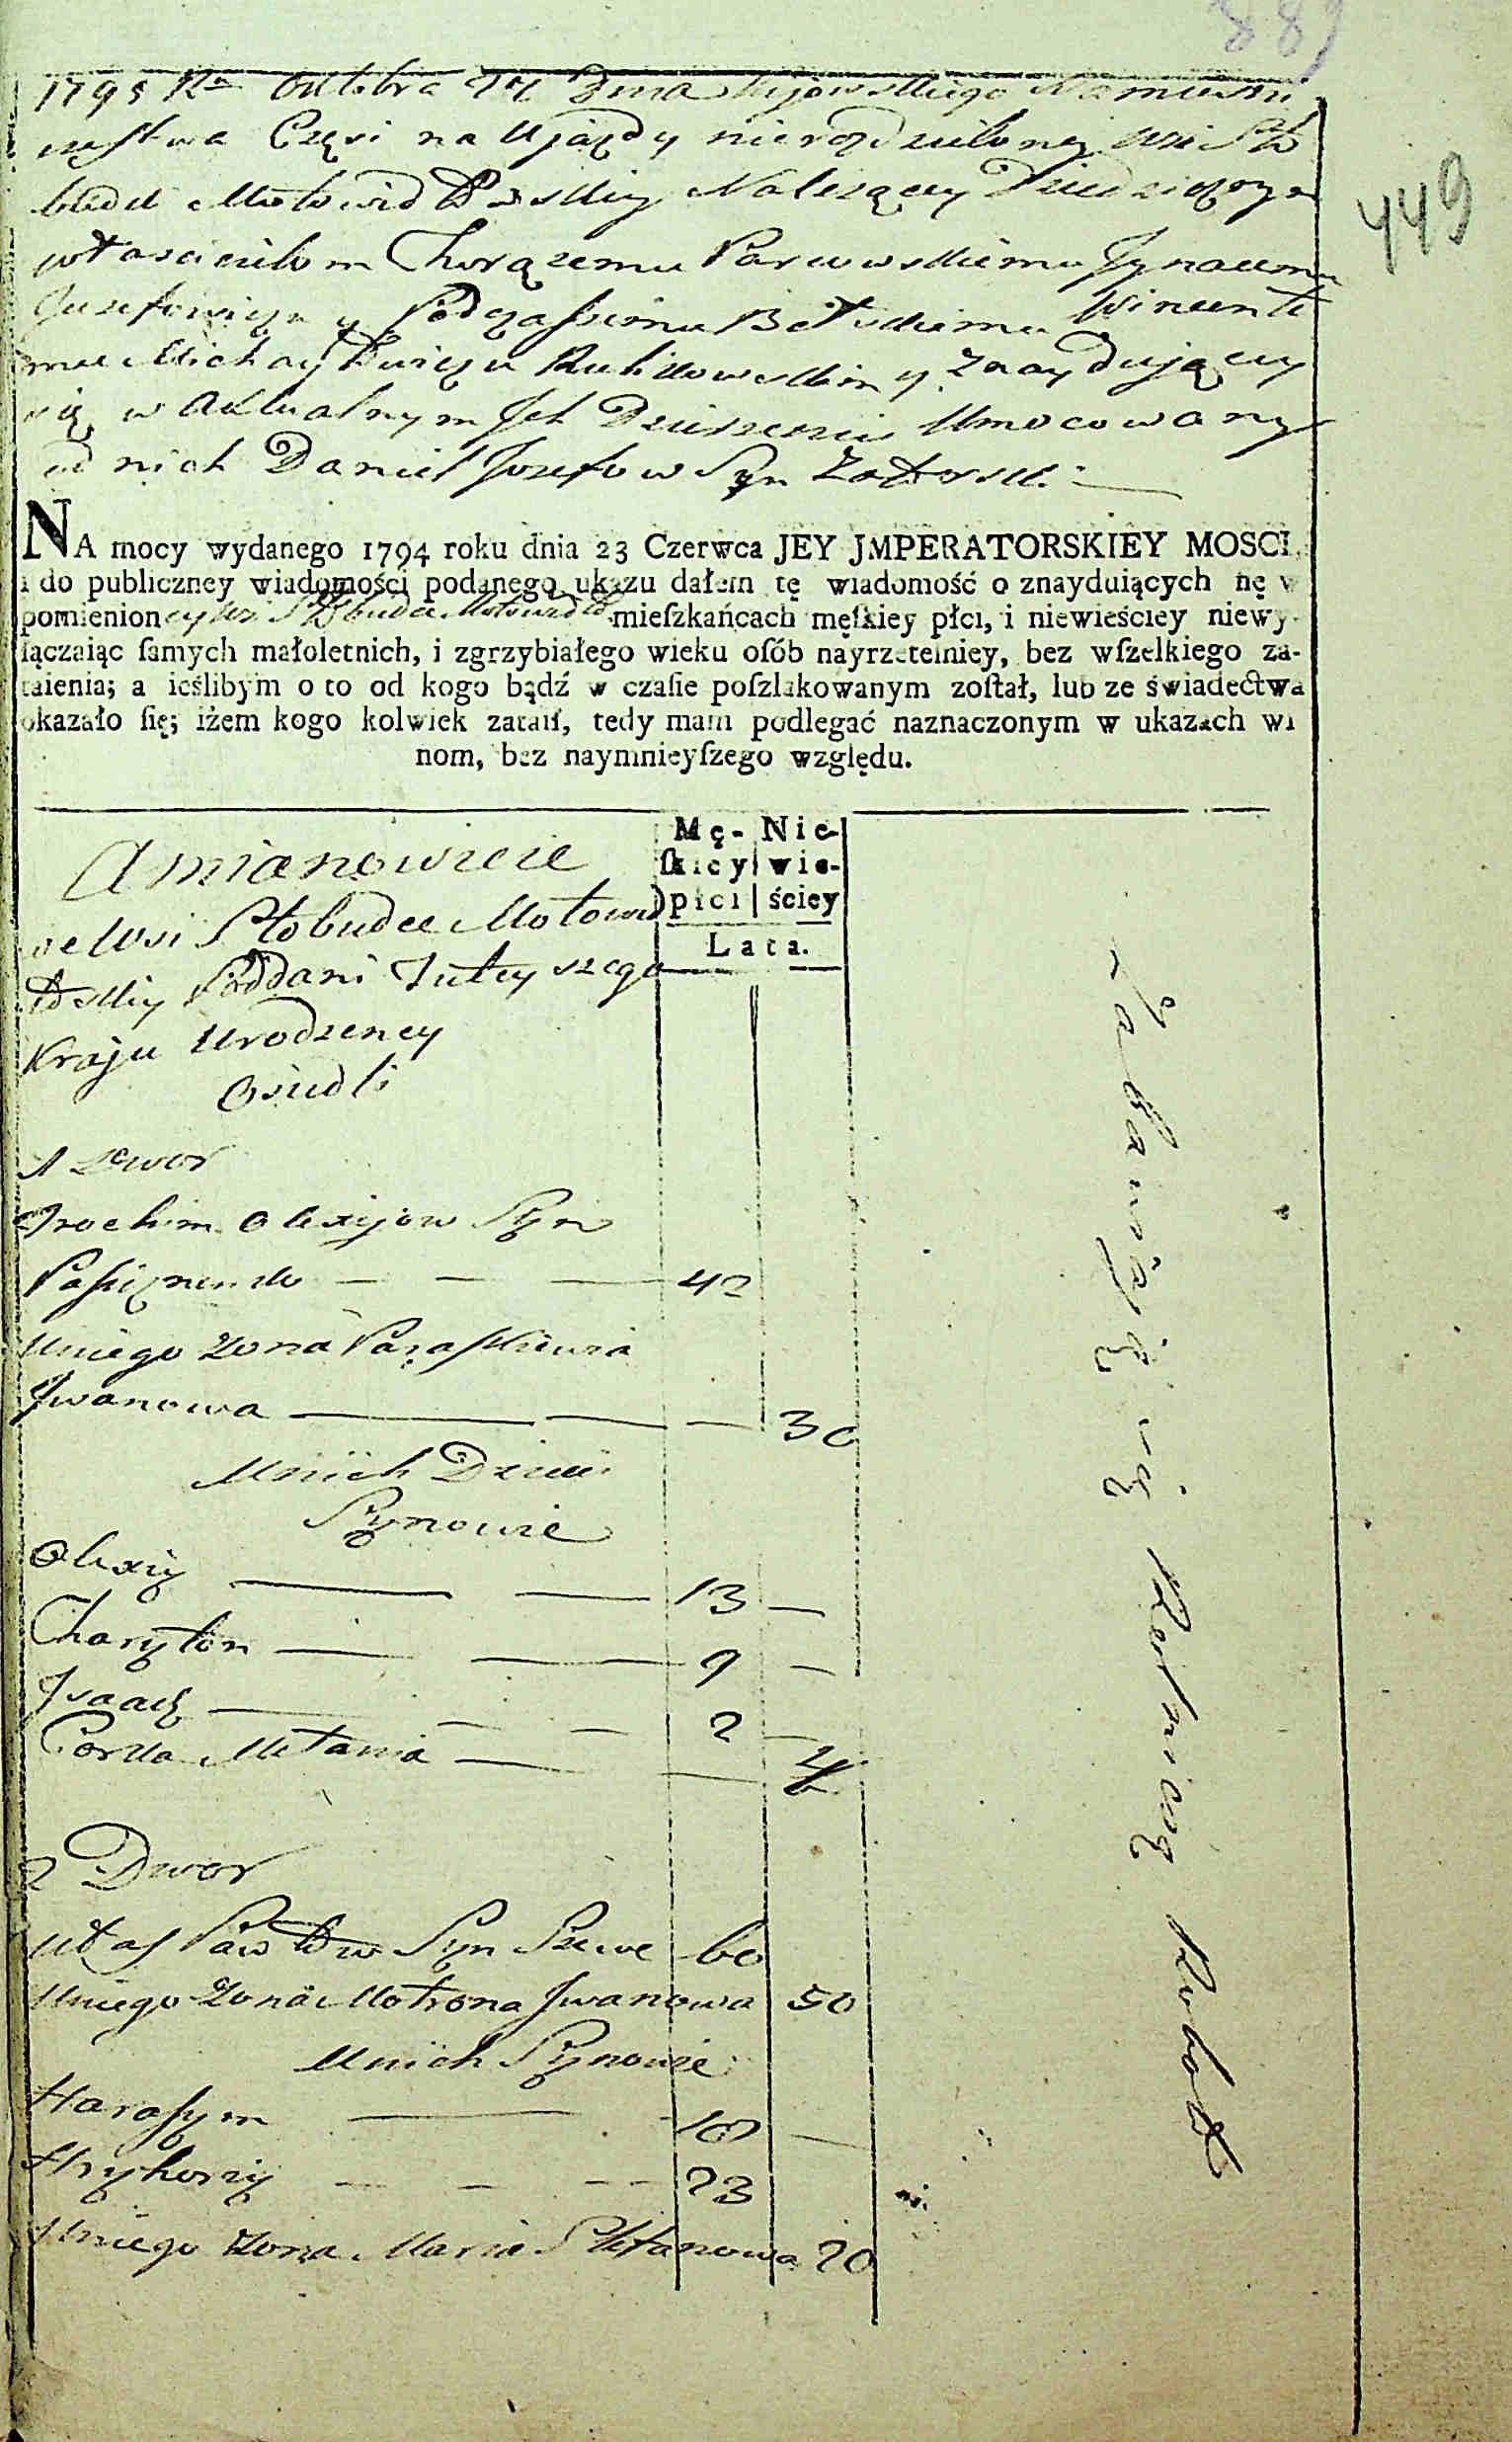 1795 Rᵘ Oktobra Dnia Kijowskiego Namiesni
ctwa Części na Ujazdy nierozdzieloney Wsi Sło
budki Motowidłowskiey Należącey Dziedzicznym
włascicielom Chorązemu Parwowskiemu Jgnacemu
Juzefowiczu y Podczaszemu Wincente
mu Michayłowiczu Rulikowskim y Znayduiącey
się w Aktualnym Jch Dzierzeniu Umocowany
od nich Daniel Jozefow Syn
NA mocy wydanego 1794 roku dnia 23 Czerwca JEY JMPERATORSKIEY MOSCI,
i do publiczney wiadomości podanego ukazu dałem tę wiadomość o znayduiących się w
pomienioney Wsi Słobudce Motowidło mieſzkańcach męſkiey płci, i niewieściey niewy-
łączaiąc ſamych małoletnich, i zgrzybiałego wieku oſób nayrzetelniey, bez wſzelkiego za-
taienia; a ieślibym o to od kogo bądź w czaſie poſzlakowanym zoſtał, lub ze świadectwa
okazało ſię; iżem kogo kolwiek zataił, tedy mam podlegać naznaczonym w ukazach wi
nom, bez naymnieyſzego względu.
Amianowicie
we Wsi Słobudce Motowid
łoskiy Poddani Tuteyszego
Kraju Urodzeney
Osiedli
Mę- Nie-
ſkiey wie-
płci ściey
Lata.
1 Dwor
Trochim Olexijow Syn
— — — 42
Uniego Zona Paraskiewia
Jwanowa — — — 30
Unich Dzieci
Synowie
Olexiy — — 13 —
Charyton — — 9 —
Jsaac — — — 2 —
Corka Mełania — — 4
2 Dwor
Włas Pawłow Syn Szewc 60
Uniego Zona Motrona Jwanowa 50
Unich Synowie
Harasym — 10 —
Hryhoriy — — — 23
Uniego Zona Maria Stefanowa 20
449